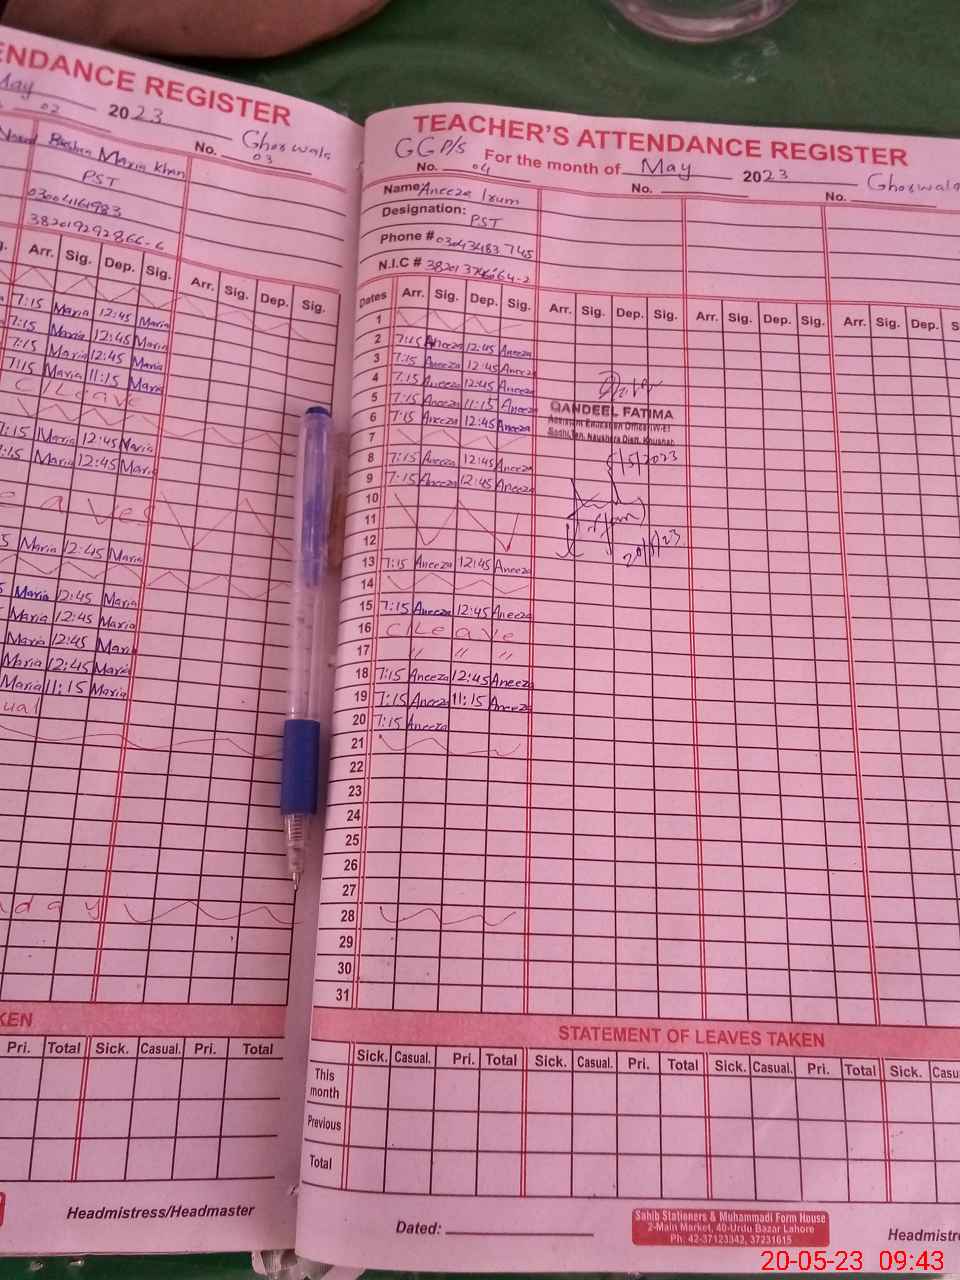 ENDANCE REGISTER
May 2023 Ghoswala
02
No. 03
Maria Khan
PST
03004164983
Arr. Sig. Dep. Sig. Arr. Sig. Dep. Sig.
7:15 Maria 12:45 Maria
7:15 Maria 12:45 Maria
7:15 Maria 12:45 Maria
7:15 Maria 11:15 Maria
C/Leave
7:15 Maria 12:45 Maria
:15 Maria 12:45 Maria
e a ves
5 Maria 12:45 Maria
5 Maria 12:45 Maria
Maria 12:45 Maria
Maria 12:45 Maria
Maria 12:45 Maria
Maria 11:15 Maria
ual
d a y
KEN
Pri. Total Sick. Casual. Pri. Total
Headmistress/Headmaster
TEACHER'S ATTENDANCE REGISTER
GGP/S For the month of May 2023 Ghoswala
No. 04 No. No.
Name Aneeza Irum
Designation: PST
Phone # 03043483745
N.I.C #
Dates Arr. Sig. Dep. Sig. Arr. Sig. Dep. Sig. Arr. Sig. Dep. Sig. Arr. Sig. Dep. S
1
2 7:15 Aneeza 12:45 Aneeza
3 7:15 Aneeza 12:45 Aneeza
4 7:15 Aneeza 12:45 Aneeza
5 7:15 Aneeza 11:15 Aneeza
QANDEEL FATIMA
6 7:15 Aneeza 12:45 Aneeza
Assistant Education Officer (W-EI)
7
8 7:15 Aneeza 12:45 Aneeza
9 7:15 Aneeza 12:45 Aneeza
10
11
12
20/5/23
13 7:15 Aneeza 12:45 Aneeza
14
15 7:15 Aneeza 12:45 Aneeza
16 C/Leave
17 " " "
18 7:15 Aneeza 12:45 Aneeza
19 7:15 Aneeza 11:15 Aneeza
20 7:15 Aneeza
21
22
23
24
25
26
27
28
29
30
31
STATEMENT OF LEAVES TAKEN
Sick. Casual. Pri. Total Sick. Casual. Pri. Total Sick. Casual. Pri. Total Sick. Casu
This month
Previous
Total
Dated:
Sahib Stationers & Muhammadi Form House
2-Main Market, 40-Urdu Bazar Lahore
Ph: 42-37123342, 37231615
Headmistre
20-05-23 09:43